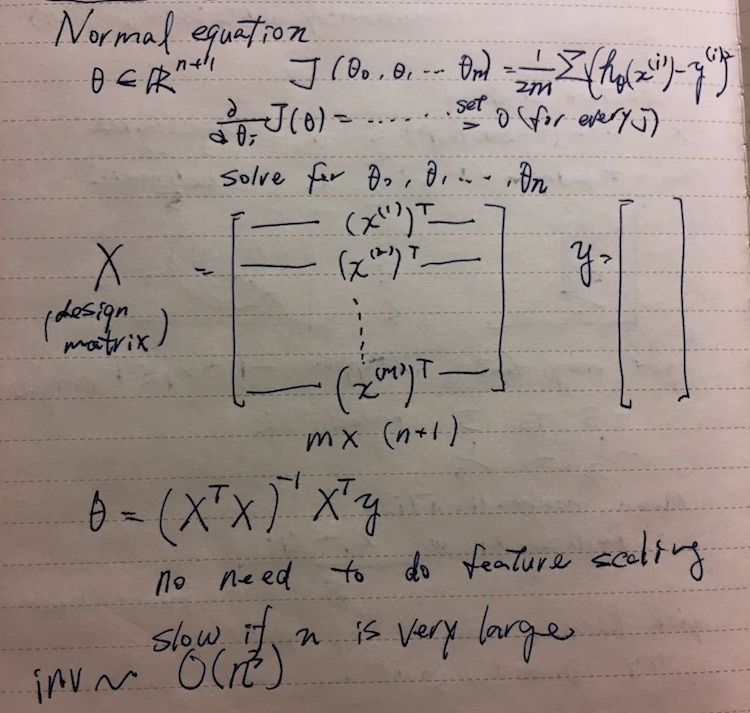 Normal equation
θ ∈ ℝⁿ⁺¹ J(θ₀, θ₁ ... θₘ) = 1/2m Σ(h_θ(x⁽ⁱ⁾) - y⁽ⁱ⁾)²
∂/∂θⱼ J(θ) = ....... set = 0 (for every j)
solve for θ₀, θ₁ ... , θn
X = [ — (x⁽¹⁾)ᵀ — y = [ ]
— (x⁽²⁾)ᵀ —
(design
matrix)
— (x⁽ᵐ⁾)ᵀ — ]
m x (n+1)
θ = (XᵀX)⁻¹ Xᵀy
no need to do feature scaling
slow if n is very large
inv ~ O(n³)